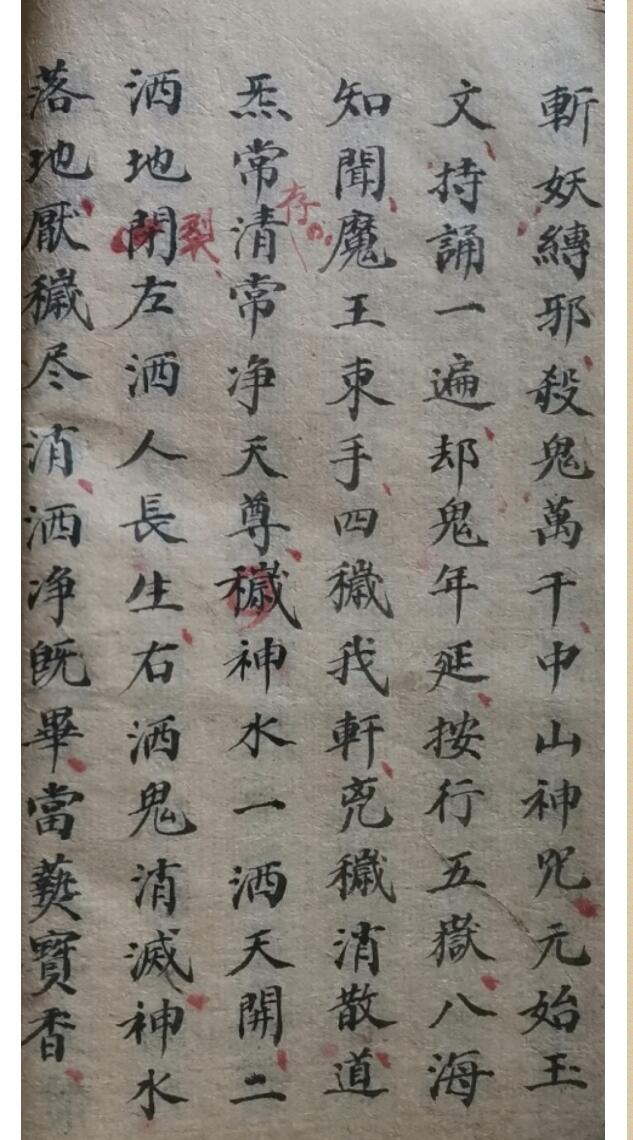 斬妖縛邪殺鬼萬千中山神咒元始玉
文持誦一遍却鬼年延按行五嶽八海
知聞魔王束手四穢我軒兇穢消散道
炁常清常净天尊穢神水一洒天開二
存
洒地閉左洒人長生右洒鬼消滅神水
裂
落地厭穢尽消洒净既畢當爇寶香